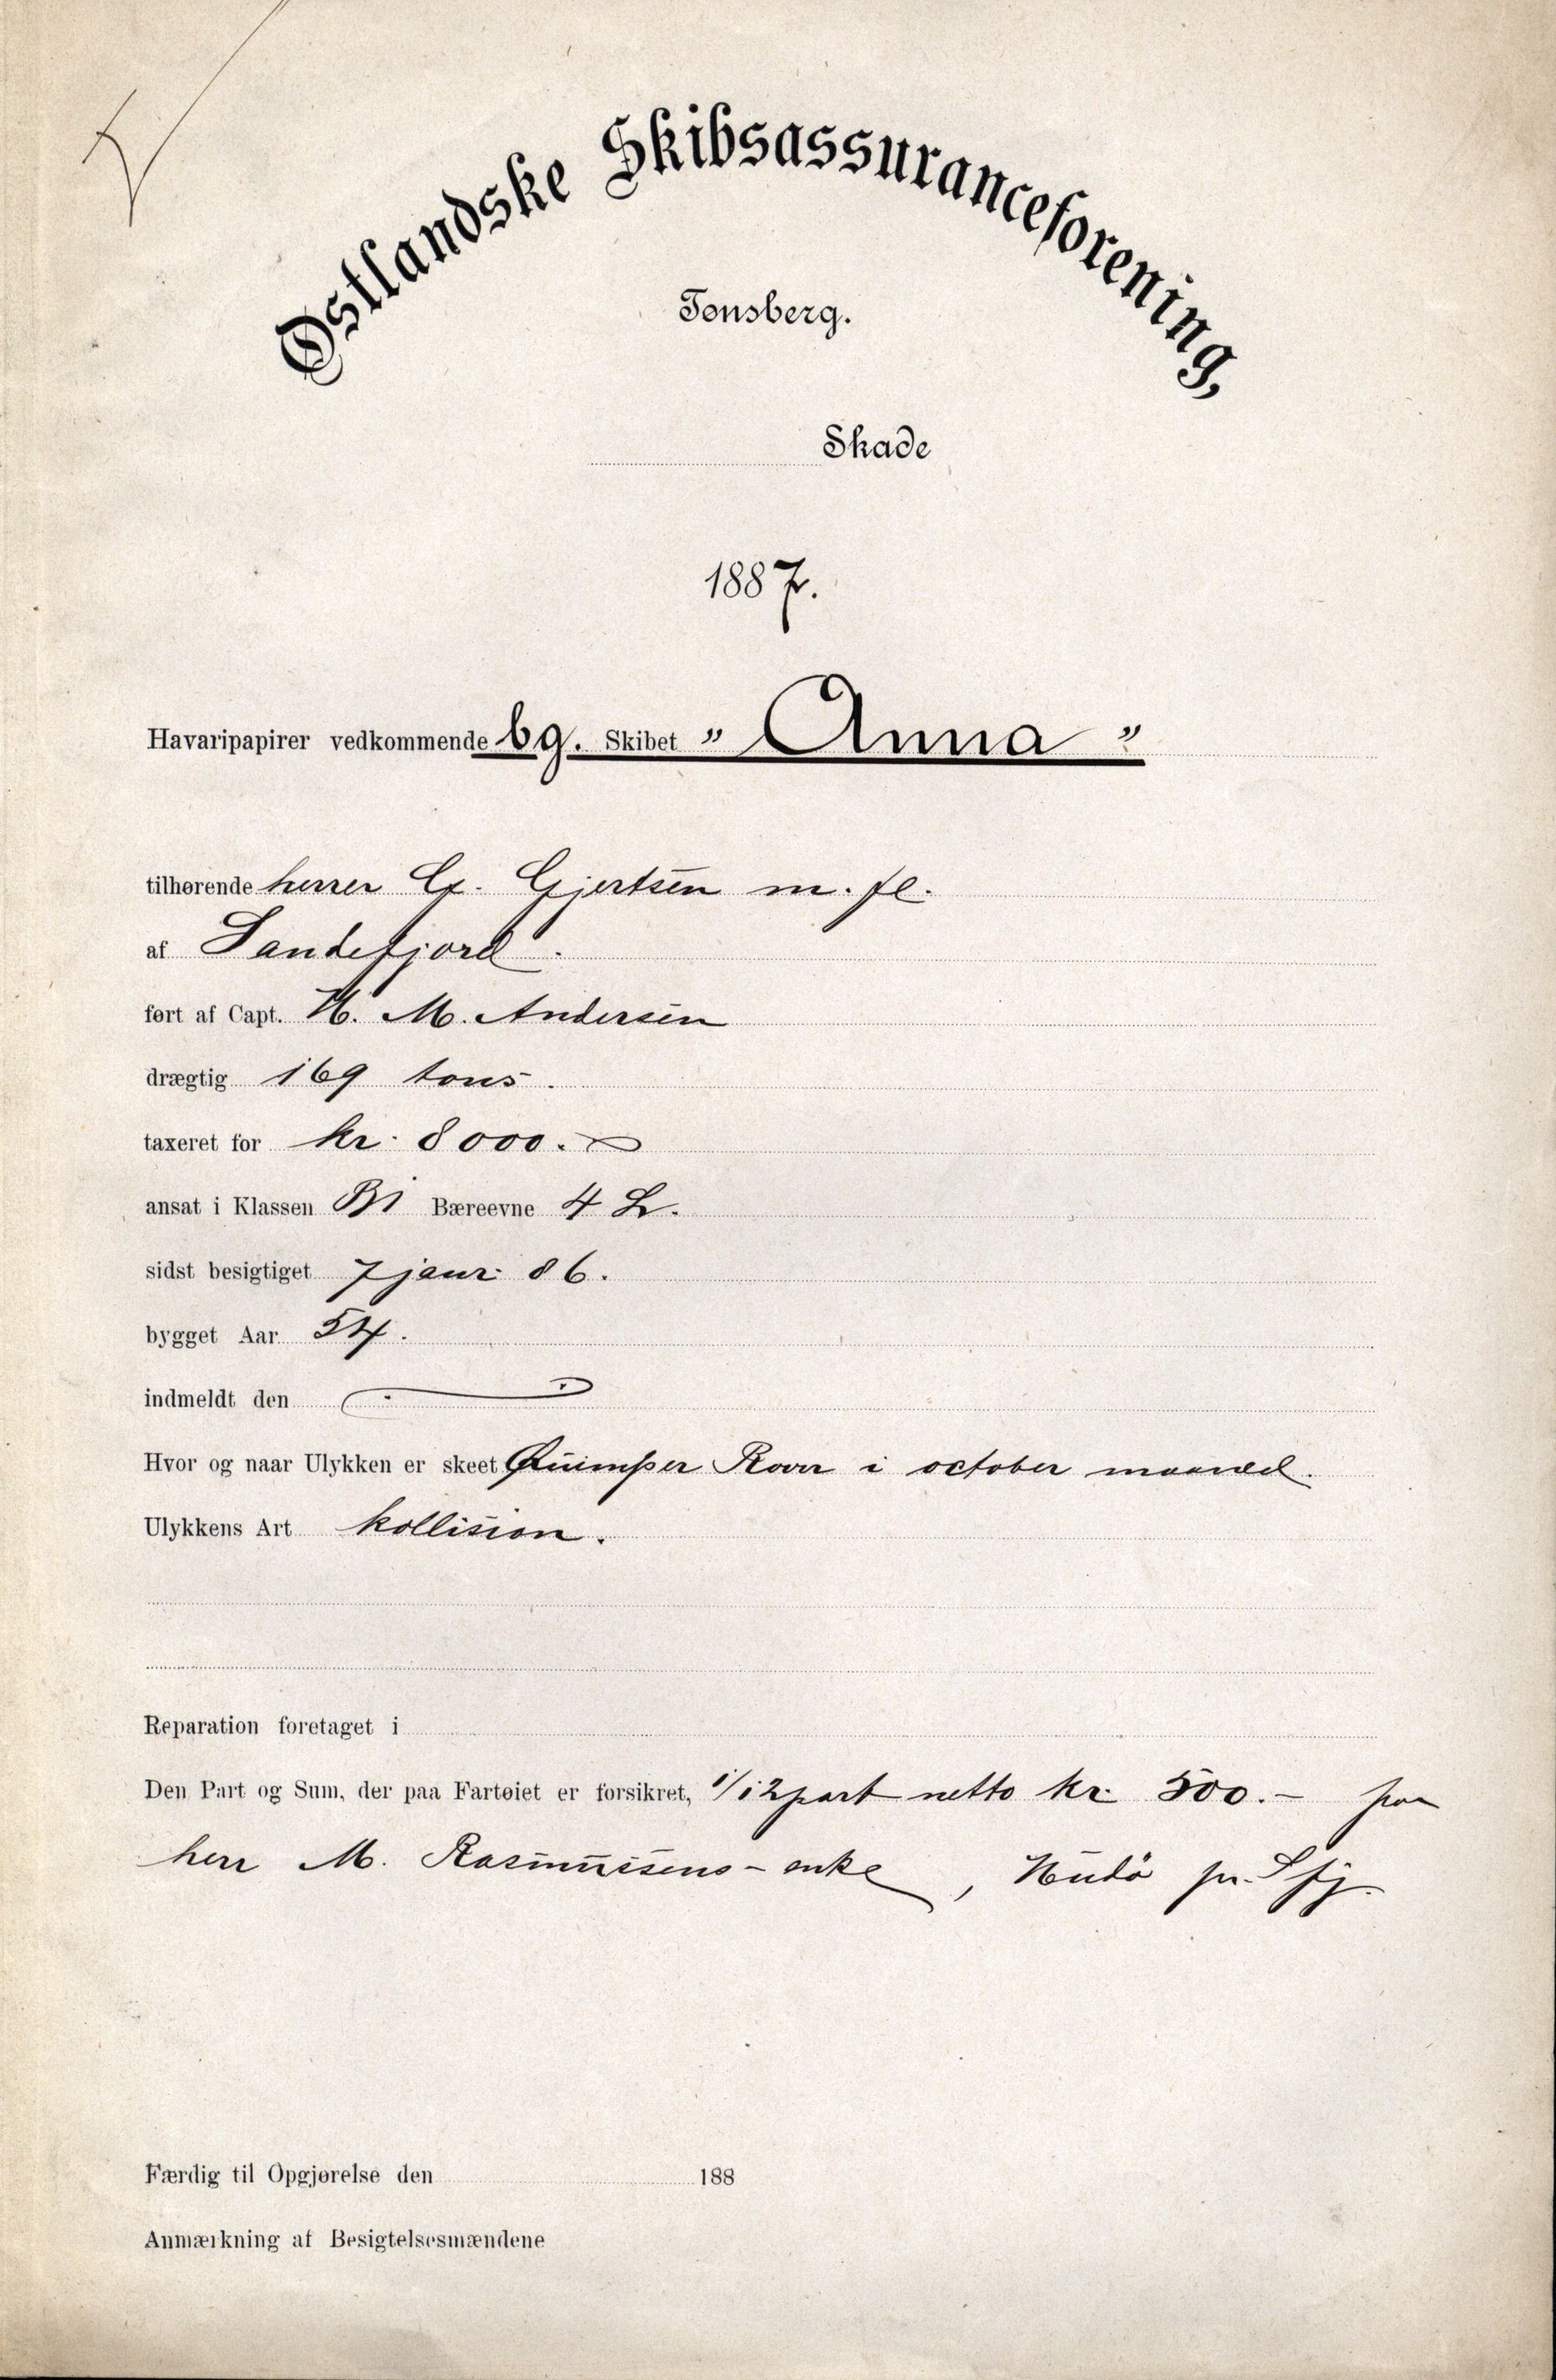 Østlandske Skibsassuranceforening,
Tønsberg.
Skade
1887.
Havaripapirer vedkommende bg. Skibet " Anna "
tilhørende herrer G. Gjertsen m. fl.
af Sandefjord.
ført af Capt. H. M. Andersen
drægtig 169 tons.
taxeret for kr. 8000.
ansat i Klassen B1 Bæreevne 4 L.
sidst besigtiget 7 janr. 86.
bygget Aar 54.
indmeldt den
Hvor og naar Ulykken er skeet Quimper River i october maaned.
Ulykkens Art kollision.
Reparation foretaget i
Den Part og Sum, der paa Fartøiet er forsikret, 1/12 part netto kr. 500.- for
herr M. Rasmussens-enke, Hudö pr. Sfj.
Færdig til Opgjørelse den 188
Anmærkning af Besigtelsesmændene